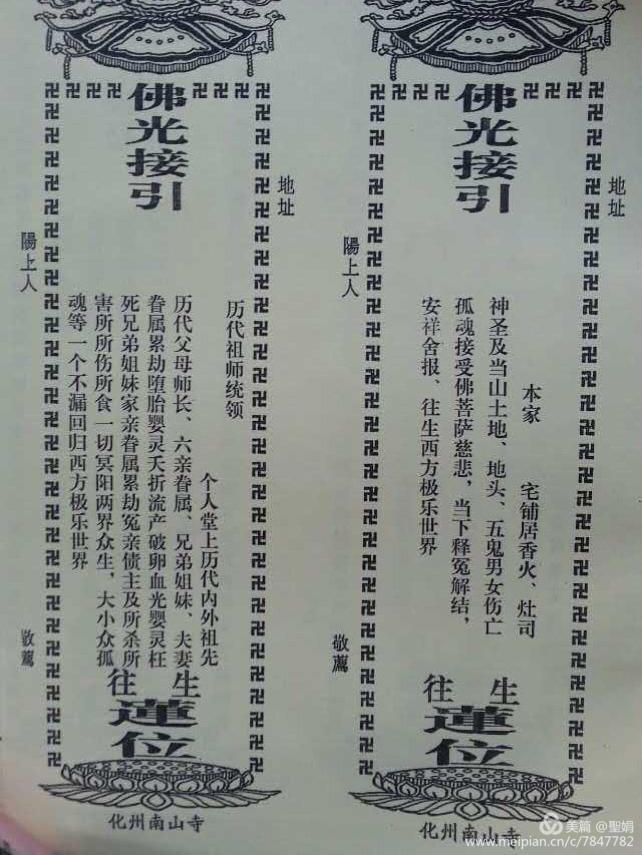 地址
佛光接引
本家　宅铺居香火、灶司
神圣及当山土地、地头、五鬼男女伤亡
孤魂接受佛菩萨慈悲，当下释冤解结，
安祥舍报、往生西方极乐世界
往生
蓮位
陽上人　敬薦
化州南山寺
地址
佛光接引
历代祖师统领
个人堂上历代内外祖先
历代父母师长、六亲眷属、兄弟姐妹、夫妻
眷属累劫堕胎婴灵夭折流产破卵血光婴灵枉
死兄弟姐妹家亲眷属累劫冤亲债主及所杀所
害所所伤所食一切冥阳两界众生，大小众孤
魂等一个不漏回归西方极乐世界
往生
蓮位
陽上人　敬薦
化州南山寺
美篇 @聖娟
www.meipian.cn/c/7847782